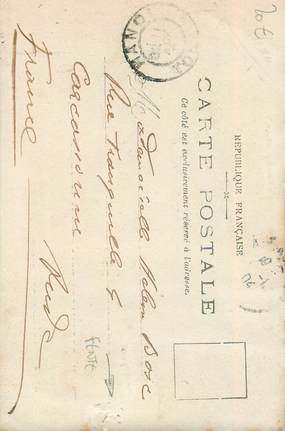 RÉPUBLIQUE FRANÇAISE
CARTE POSTALE
Ce côté est exclusivement réservé à l'adresse.
Mademoiselle Hélène Bosc
Rue Tranquille 6
Carcassonne Aude
France
HANOI
20 €
FENTE